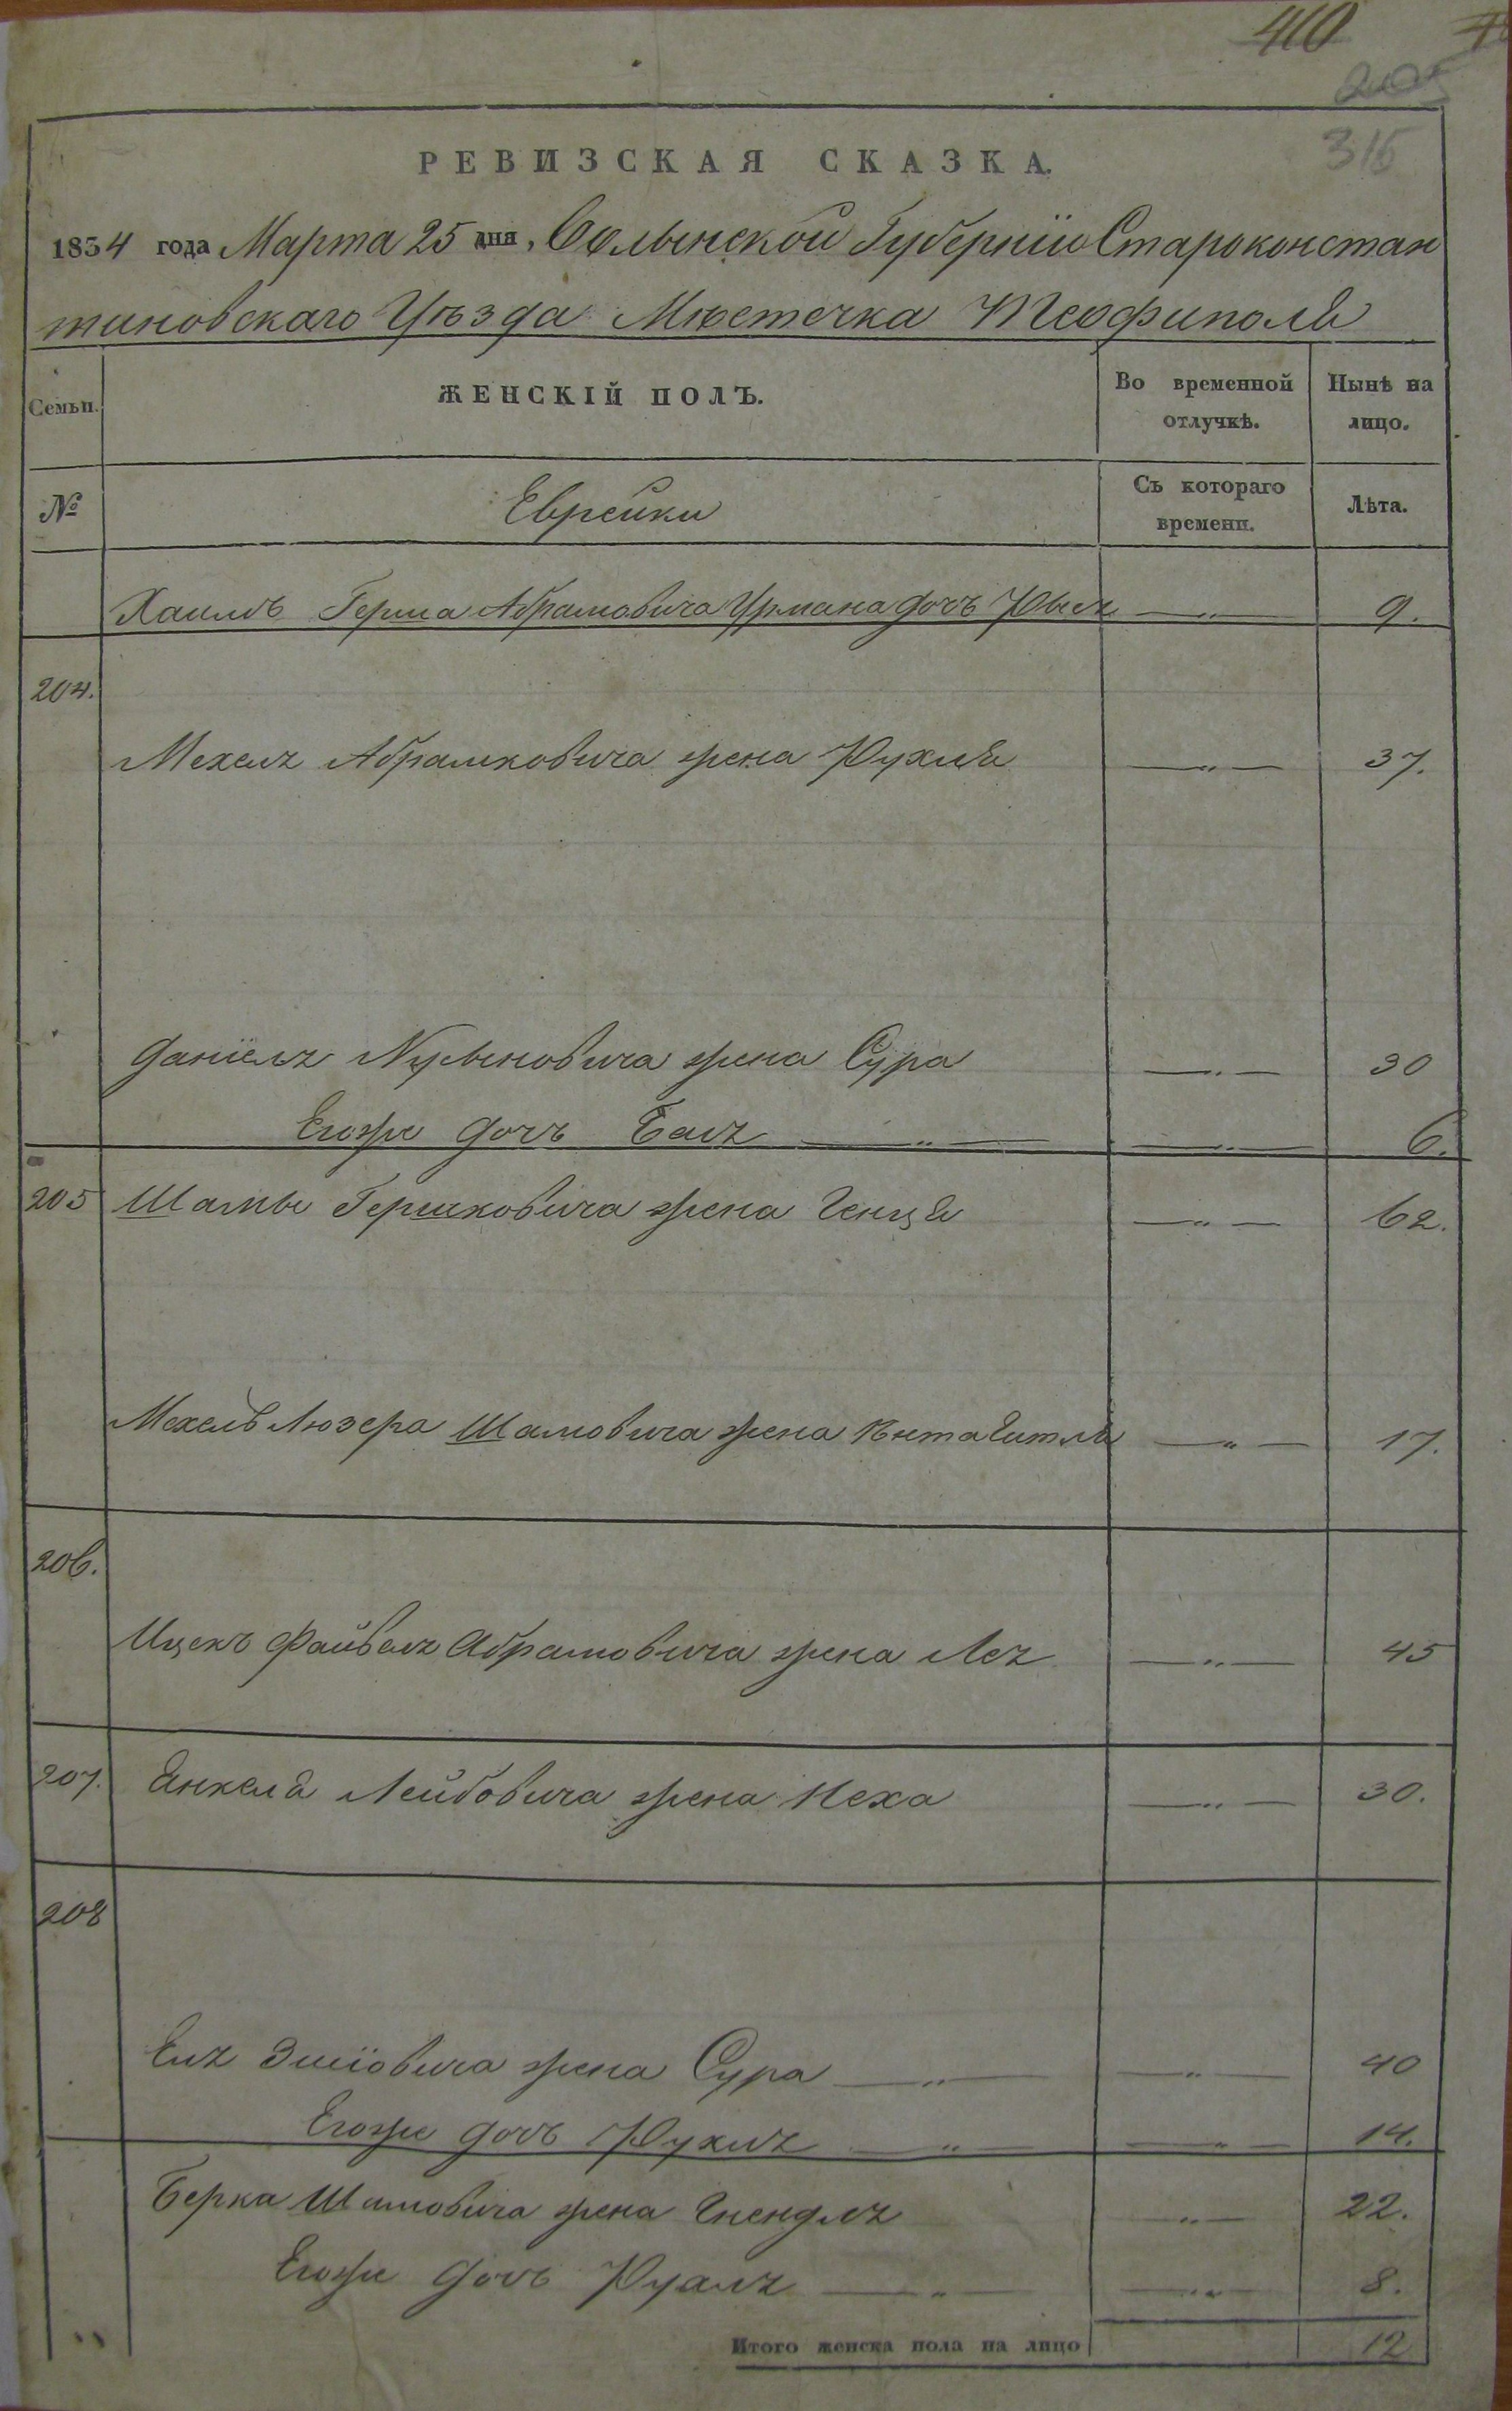 410
315
РЕВИЗСКАЯ СКАЗКА.
1834 года Марта 25 дня, Волынской Губернїи Староконстан
тиновскаго Уѣзда Мѣстечка Теофиполя
Семьи.
ЖЕНСКІЙ ПОЛЪ.
Во временной отлучкѣ.
Нынѣ на лицо.
№
Еврейки
Съ котораго времени.
Лѣта.
Хаимъ Герша Абрамовича Урмана дочь 9.
204.
Мехеля Абрамковича жена Рухля 37.
Данїеля Нусыновича жена Сура 30
Егоже дочь Бася 6.
205 Шамы Гершковича жена Генця 62.
Мехель Люзера Шамовича жена Ента Гитля 17.
206.
Ицекъ Файвеля Абрамовича жена Лея 45
207. Янкеля Лейбовича жена Неха 30.
208
Еля жена Сура 40
Егоже дочь Рухля 14.
Берка Шимовича жена Гнендля 22.
Егоже дочь 8.
Итого женска пола на лицо 12